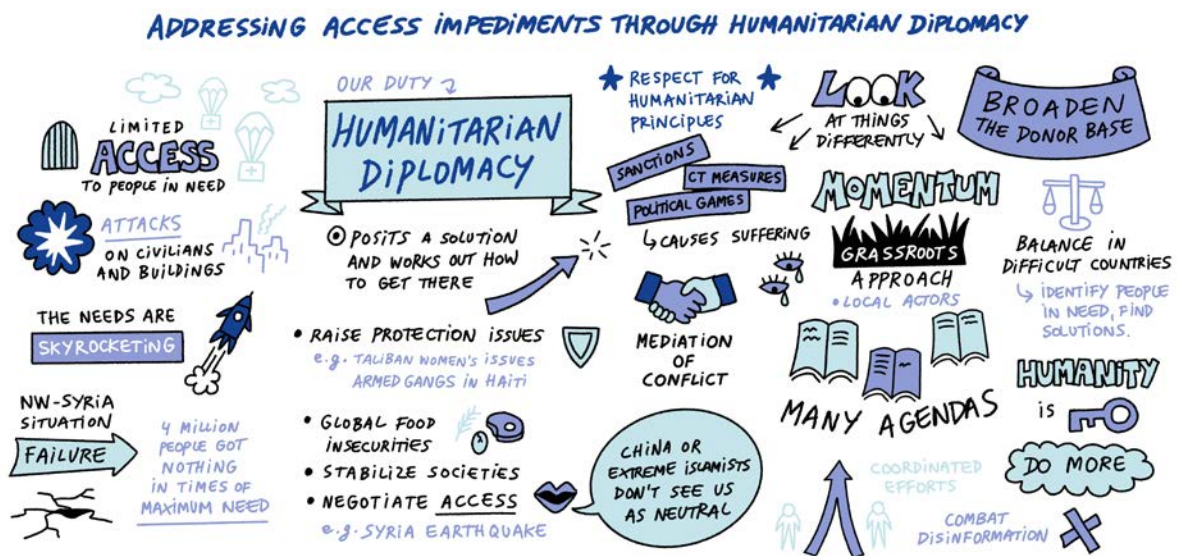 ADDRESSING ACCESS IMPEDIMENTS THROUGH HUMANITARIAN DIPLOMACY
LIMITED
ACCESS
TO PEOPLE IN NEED
ATTACKS
ON CIVILIANS
AND BUILDINGS
THE NEEDS ARE
SKYROCKETING
NW-SYRIA
SITUATION
FAILURE
4 MILLION
PEOPLE GOT
NOTHING
IN TIMES OF
MAXIMUM NEED
OUR DUTY
HUMANITARIAN
DIPLOMACY
POSITS A SOLUTION
AND WORKS OUT HOW
TO GET THERE
• RAISE PROTECTION ISSUES
e.g. TALIBAN WOMEN'S ISSUES
ARMED GANGS IN HAITI
• GLOBAL FOOD
INSECURITIES
• STABILIZE SOCIETIES
• NEGOTIATE ACCESS
e.g. SYRIA EARTHQUAKE
RESPECT FOR
HUMANITARIAN
PRINCIPLES
SANCTIONS
CT MEASURES
POLITICAL GAMES
CAUSES SUFFERING
MEDIATION
OF
CONFLICT
CHINA OR
EXTREME ISLAMISTS
DON'T SEE US
AS NEUTRAL
LOOK
AT THINGS
DIFFERENTLY
MOMENTUM
GRASSROOTS
APPROACH
• LOCAL ACTORS
MANY AGENDAS
COORDINATED
EFFORTS
COMBAT
DISINFORMATION
BROADEN
THE DONOR BASE
BALANCE IN
DIFFICULT COUNTRIES
IDENTIFY PEOPLE
IN NEED, FIND
SOLUTIONS.
HUMANITY
IS
DO MORE